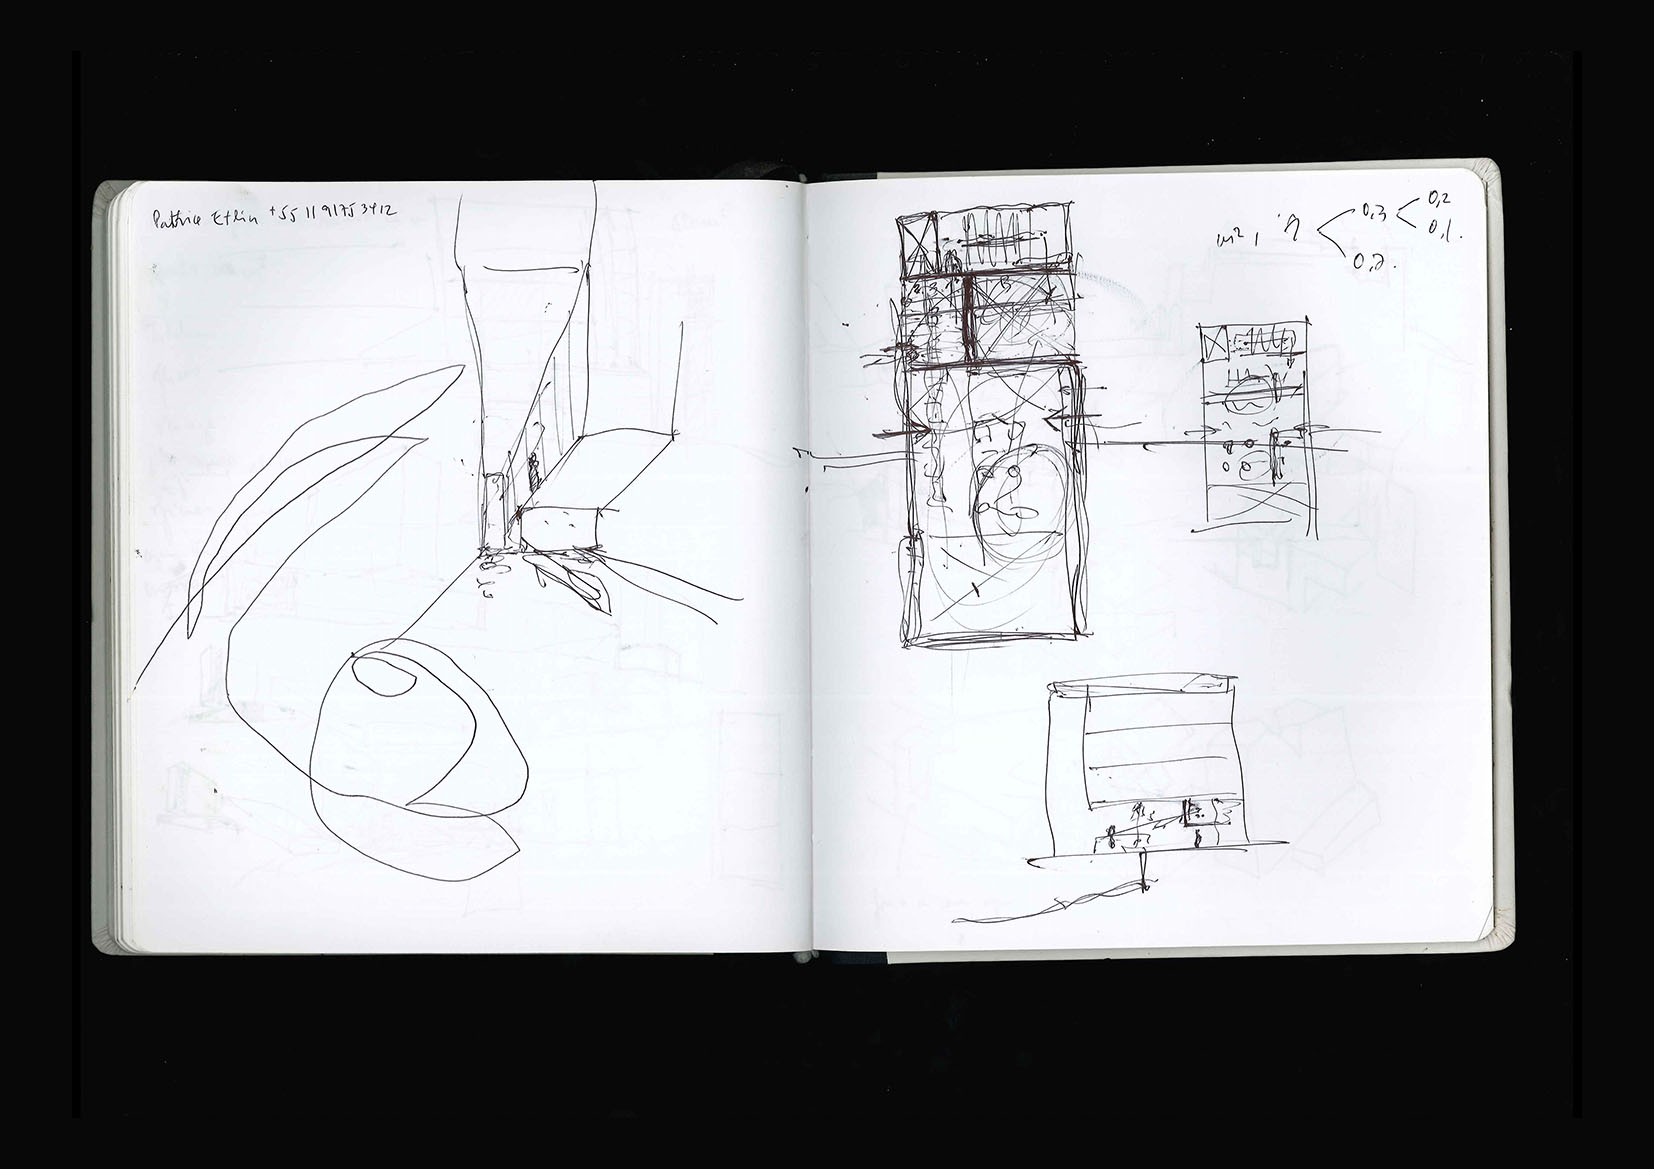 Patrice Etlin +55 11 91753412
m², 
0,3
0,2
0,1.